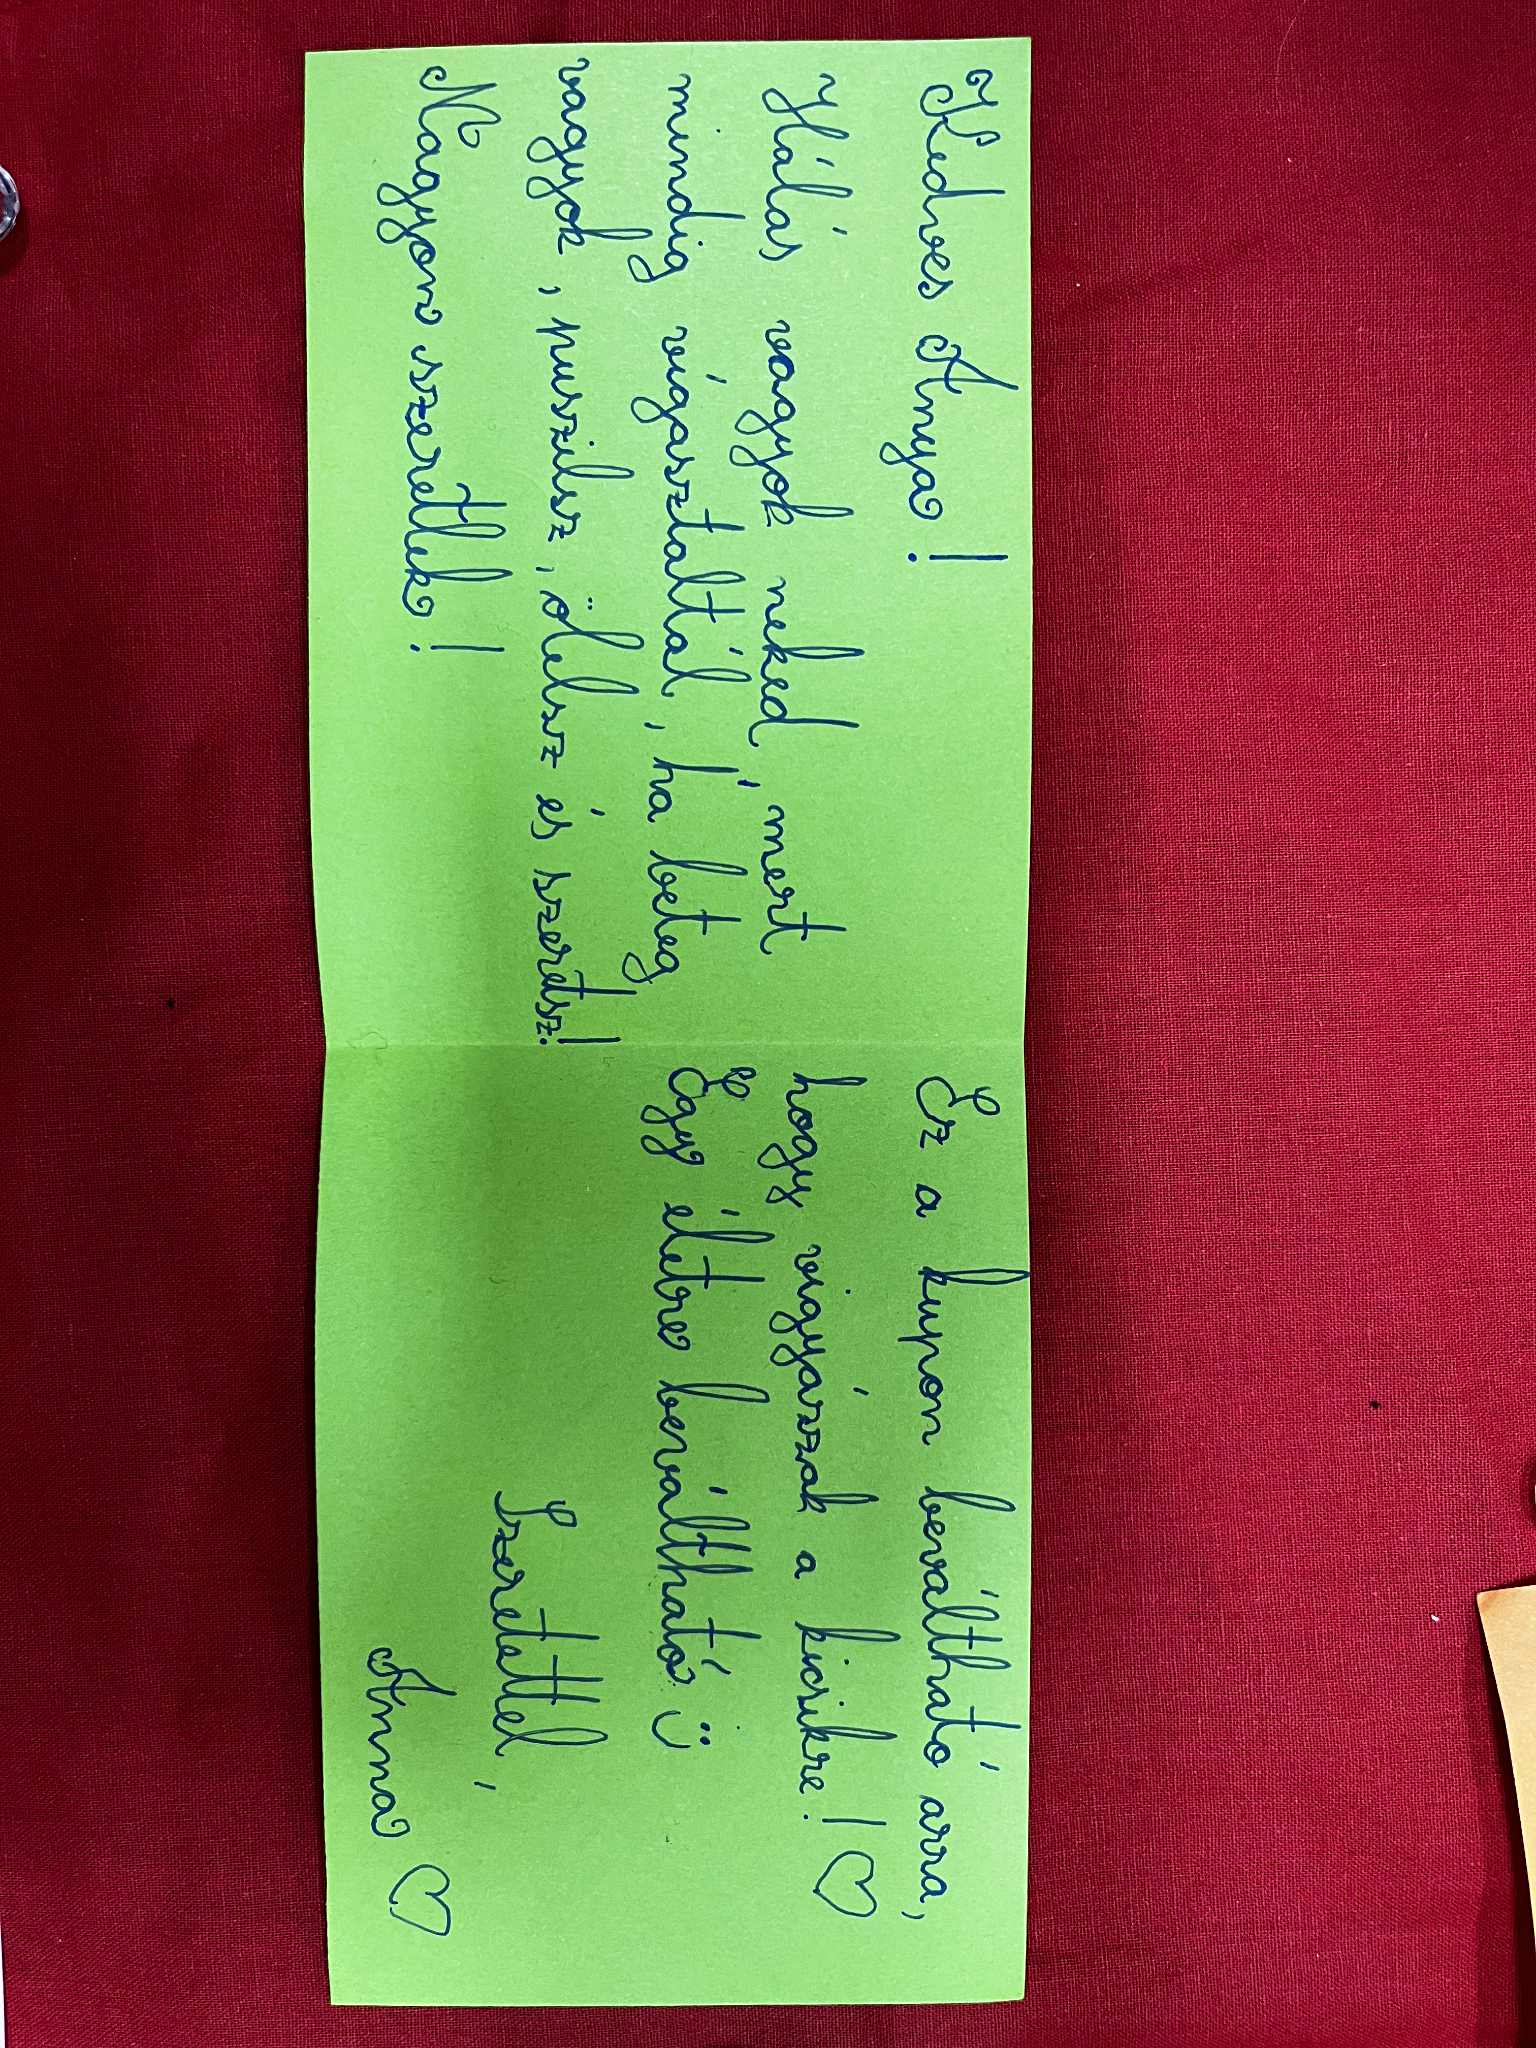 Kedves Anya!
Hálás vagyok neked, mert
mindig vígasztaltál, ha beteg
vagyok, puszilsz, ölelsz és szeretsz!
Nagyon szeretlek!
Ez a kupon beváltható arra,
hogy vigyázzak a kicsikre! ♡
Egy életre beváltható ü
Szeretettel,
Anna ♡